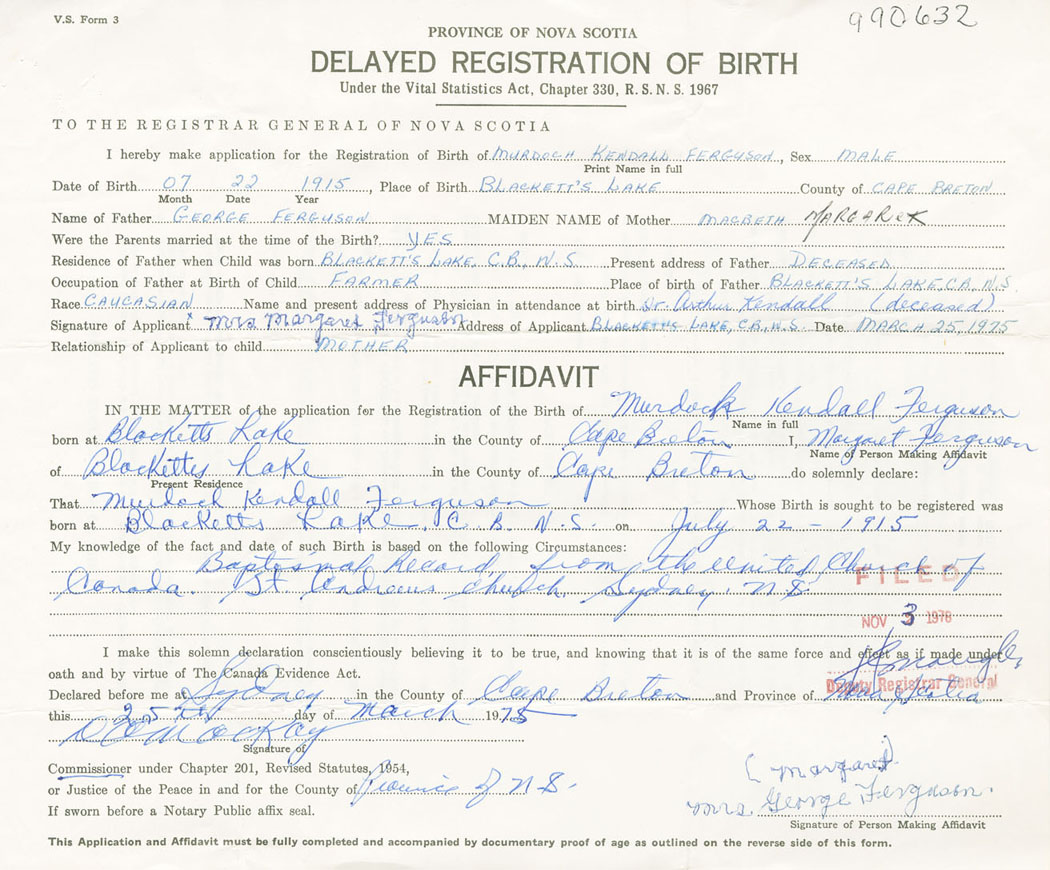 V.S. Form 3
990632
PROVINCE OF NOVA SCOTIA
DELAYED REGISTRATION OF BIRTH
Under the Vital Statistics Act, Chapter 330, R.S.N.S. 1967
TO THE REGISTRAR GENERAL OF NOVA SCOTIA
I hereby make application for the Registration of Birth of MURDOCH KENDALL FERGUSON, Sex MALE
Print Name in full
Date of Birth 07 22 1915, Place of Birth BLACKETT'S LAKE County of CAPE BRETON
Month Date Year
Name of Father GEORGE FERGUSON MAIDEN NAME of Mother MACBETH MARGARET
Were the Parents married at the time of the Birth? YES
Residence of Father when Child was born BLACKETT'S LAKE, C.B., N.S. Present address of Father DECEASED
Occupation of Father at Birth of Child FARMER Place of birth of Father BLACKETT'S LAKE, C.B., N.S.
Race CAUCASIAN Name and present address of Physician in attendance at birth Dr. Arthur Kendall (deceased)
Signature of Applicant x Mrs Margaret Ferguson Address of Applicant BLACKETT'S LAKE, C.B., N.S. Date MARCH 25, 1975
Relationship of Applicant to child MOTHER
AFFIDAVIT
IN THE MATTER of the application for the Registration of the Birth of Murdock Kendall Ferguson
Name in full
born at Blacketts Lake in the County of Cape Breton I, Margaret Ferguson
Name of Person Making Affidavit
of Blacketts Lake in the County of Cape Breton do solemnly declare:
Present Residence
That Murdoch Kendall Ferguson Whose Birth is sought to be registered was
born at Blacketts Lake, C. B. N.S. on July 22 - 1915
My knowledge of the fact and date of such Birth is based on the following Circumstances:
Baptismal Record from the United Church of
Canada. St. Andrews Church, Sydney, N.S.
FILED
NOV 3 1978
I make this solemn declaration conscientiously believing it to be true, and knowing that it is of the same force and effect as if made under
oath and by virtue of The Canada Evidence Act.
Deputy Registrar General
Declared before me at Sydney in the County of Cape Breton and Province of Nova Scotia
this 25th day of March 1975
Signature of
Commissioner under Chapter 201, Revised Statutes, 1954,
or Justice of the Peace in and for the County of Province of N.S.
If sworn before a Notary Public affix seal.
(Margaret)
Mrs. George Ferguson.
Signature of Person Making Affidavit
This Application and Affidavit must be fully completed and accompanied by documentary proof of age as outlined on the reverse side of this form.